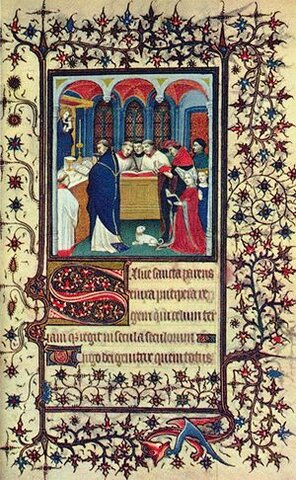 Salue sancta parens
enixa puerpera re
gem qui celum ter
ram qz regit in secula seculorum
Virgo dei genitrix quem totus